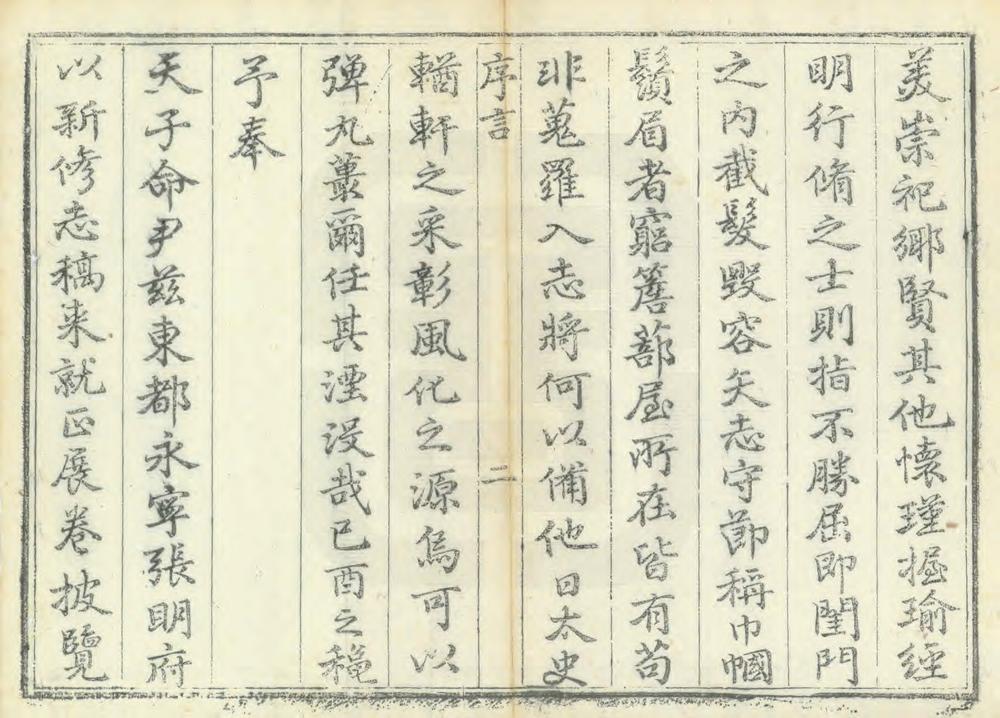 美崇祀鄉賢其他懷瑾握瑜經
明行脩之士則指不勝屈即閨門
之內截髮毀容矢志守節稱巾幗
鬚眉者窮簷蔀屋所在皆有苟
非蒐羅入志將何以備他日太史
序言 二
輶軒之采彰風化之源烏可以
彈丸蕞爾任其湮沒哉己酉之龝
予奉
天子命尹茲東都永寧張明府
以新修志稿来就正展卷披覽